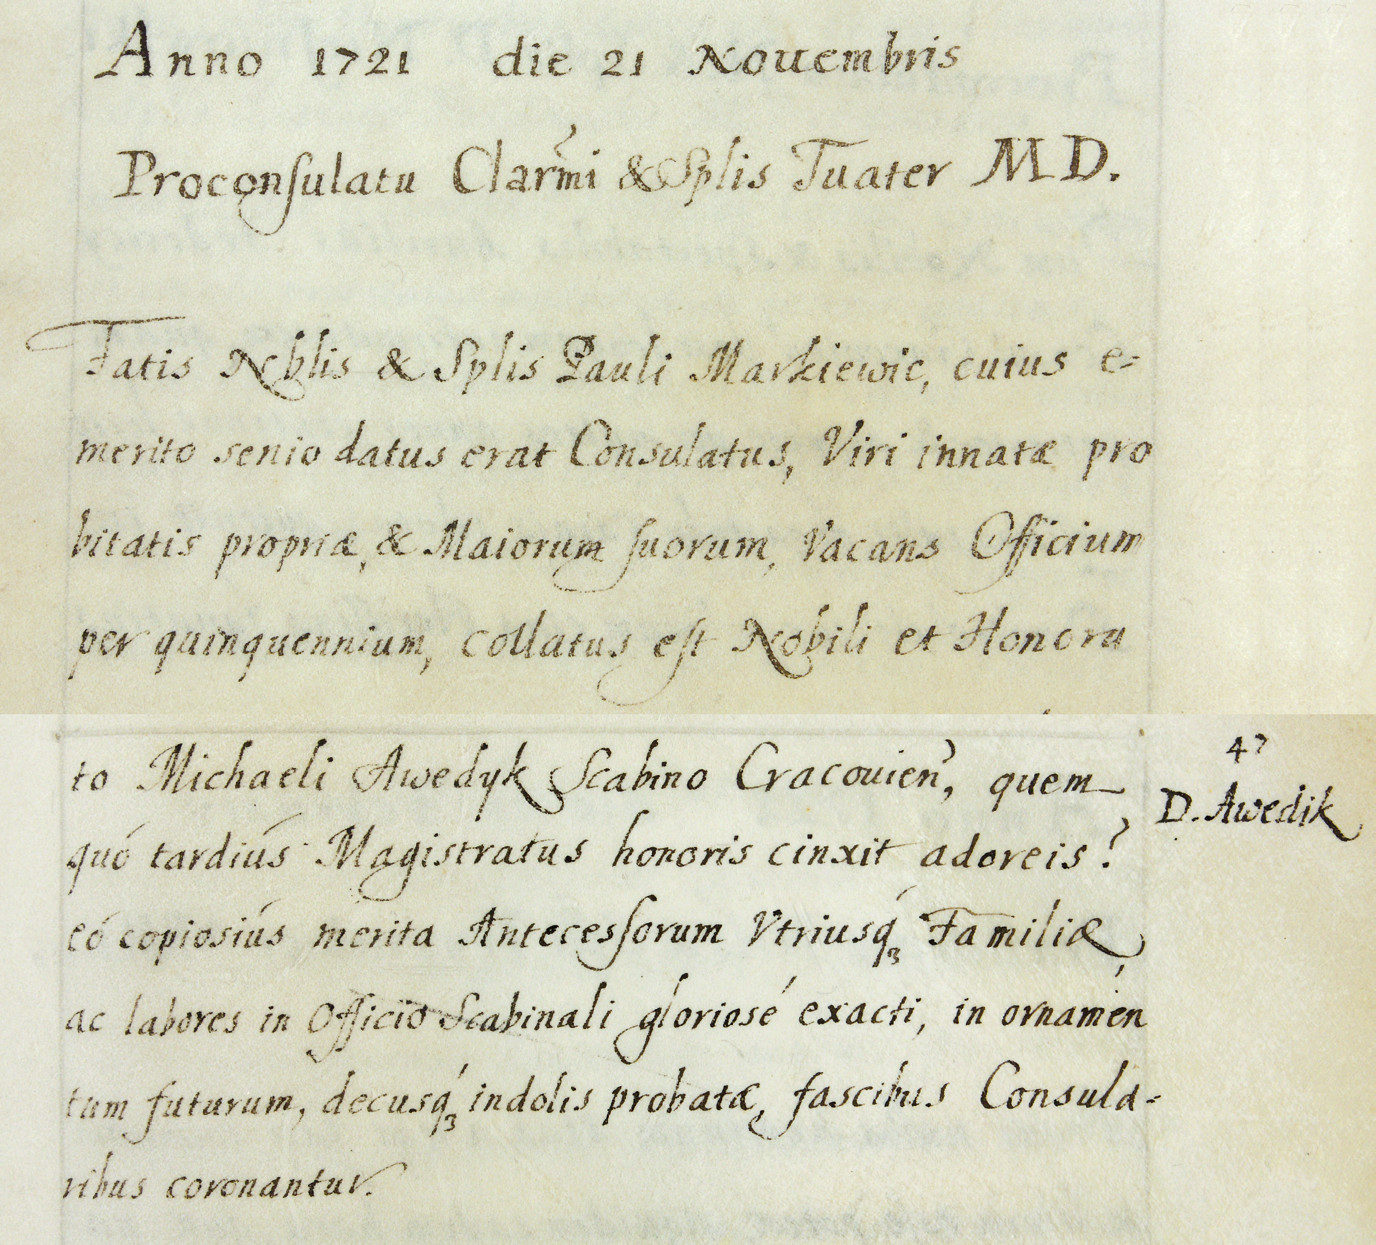 Anno 1721 die 21 Nouembris
Proconſulatu Clarmi & Splis Tuater M D.
Fatis Nblis & Splis Pauli Markiewic, cuius e-
merito senio datus erat Consulatus, Viri innatæ pro
bitatis propriæ, & Maiorum ſuorum, Vacans Officium
per quinquennium, collatus eſt Nobili et Honora
to Michaeli Awedyk Scabino Cracouien, quem
quó tardiús Magistratus honoris cinxit adoreis?
eó copiosiús merita Antecesſorum Vtriusq́ꝫ Familiæ,
ac labores in Officio Scabinali gloriosé exacti, in ornamén
tum futurum, decusq́ꝫ indolis probatæ, fascibus Consula-
ribus coronantur.
47
D. Awedik